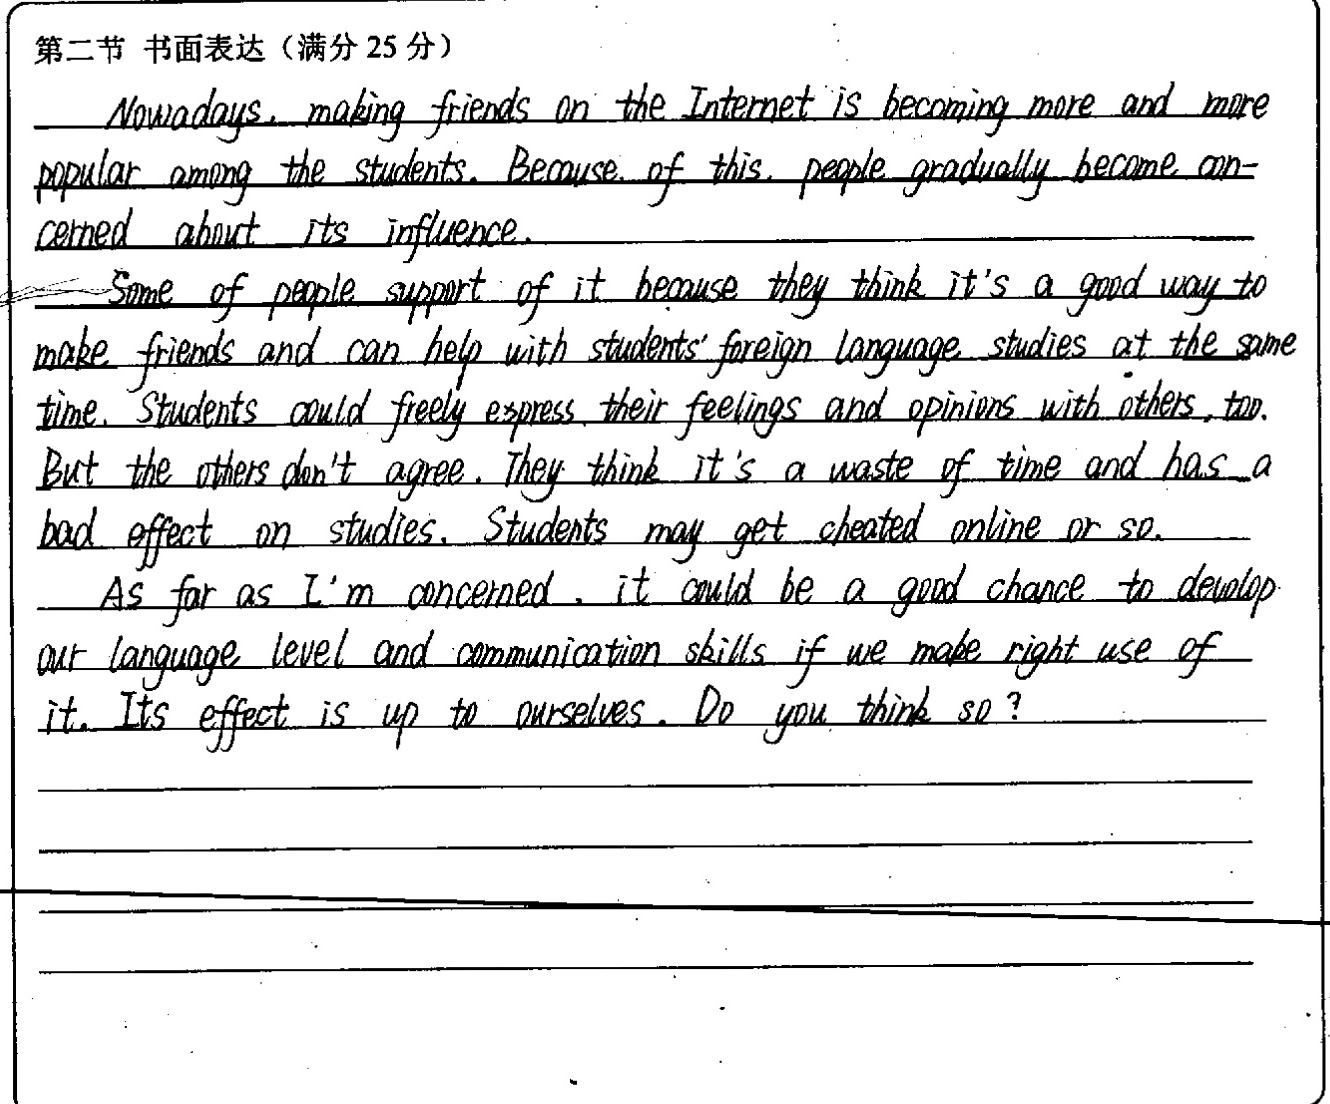 第二节 书面表达（满分 25 分）
Nowadays, making friends on the Internet is becoming more and more
popular among the students. Because of this, people gradually become con-
cerned about its influence.
Some of people support of it because they think it's a good way to
make friends and can help with students' foreign language studies at the same
time. Students could freely express their feelings and opinions with others, too.
But the others don't agree. They think it's a waste of time and has a
bad effect on studies. Students may get cheated online or so.
As far as I'm concerned, it could be a good chance to develop
our language level and communication skills if we make right use of
it. Its effect is up to ourselves. Do you think so?